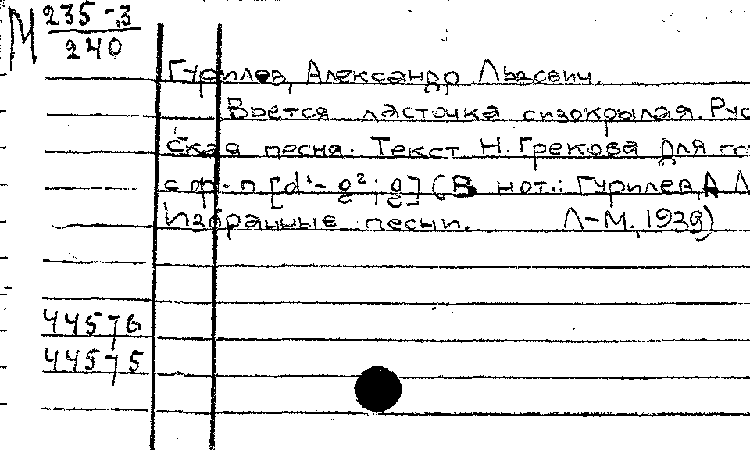 М 235-3
240
Гурилев, Александр Львович.
Вьется ласточка сизокрылая. Рус
ская песня. Текст Н. Грекова Для го
с ф-п [d'-g²; g] (В нот.: Гурилев, А Л
Избранные песни. Л-М, 1929)
44576
44575